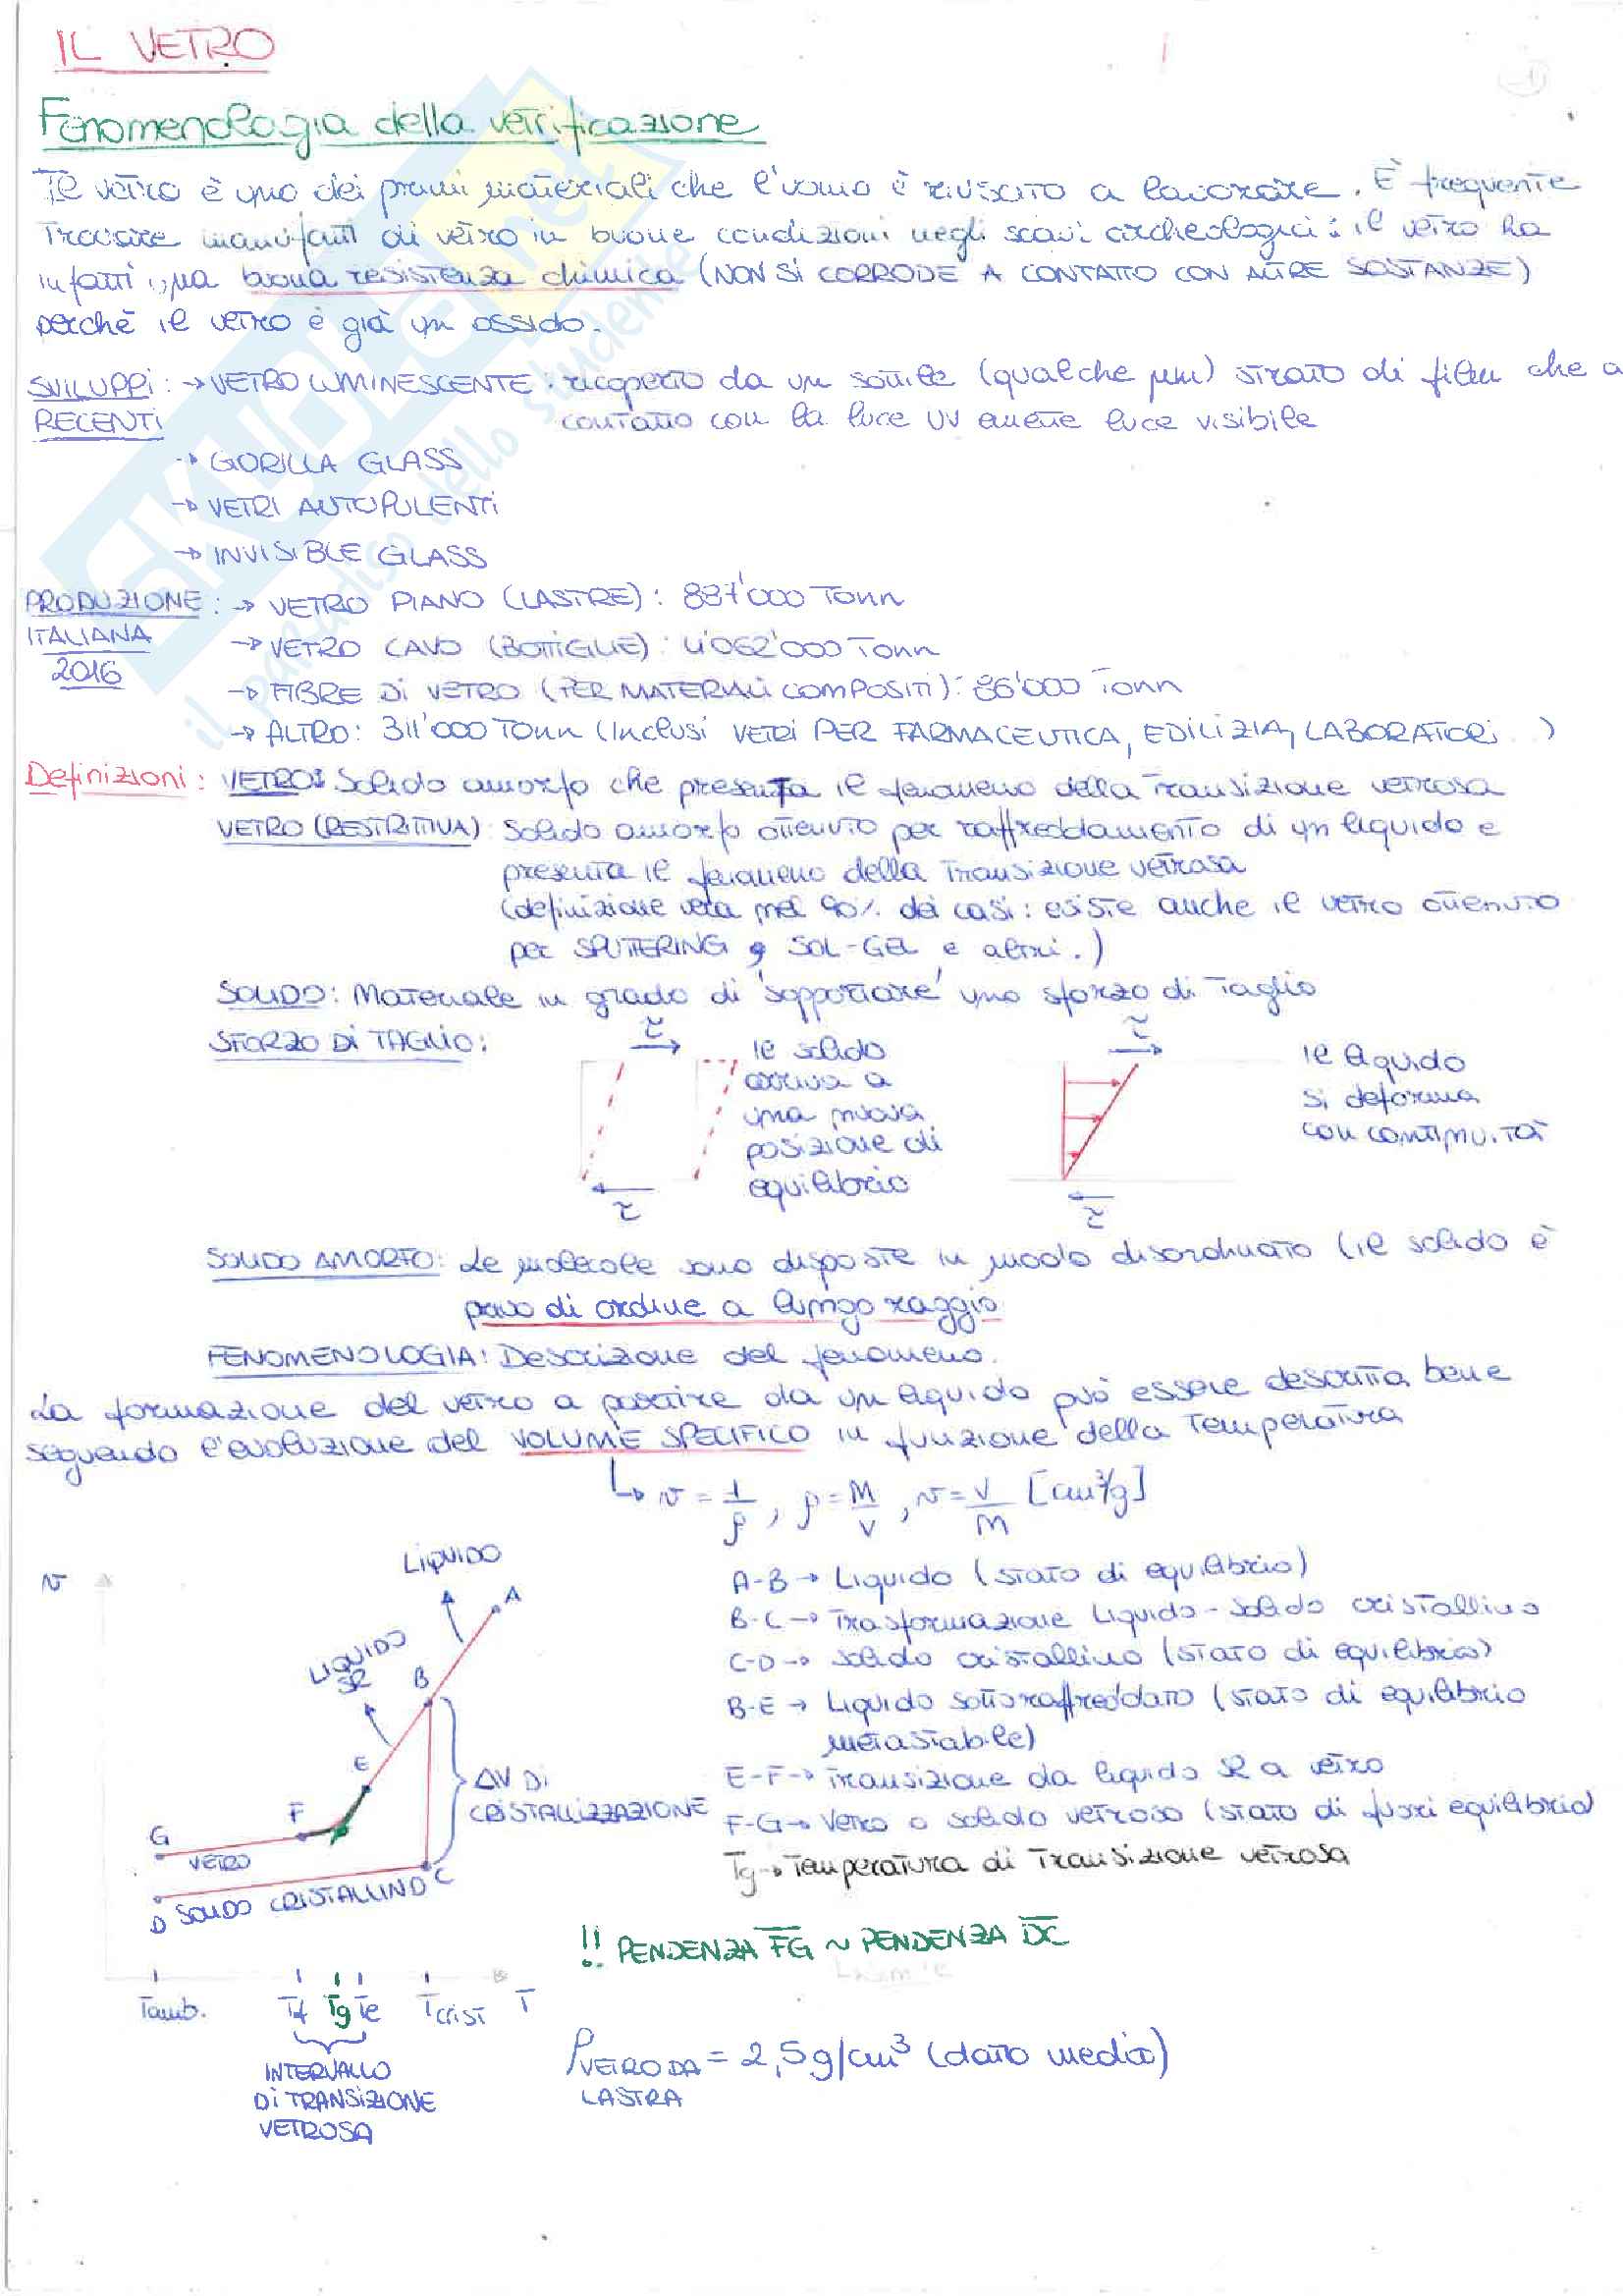 IL VETRO
Fenomenologia della vetrificazione
Il vetro è uno dei primi materiali che l'uomo è riuscito a lavorare. È frequente
trovare manufatti di vetro in buone condizioni negli scavi archeologici: il vetro ha
infatti una buona resistenza chimica (NON SI CORRODE A CONTATTO CON ALTRE SOSTANZE)
perchè il vetro è già un ossido.
SVILUPPI RECENTI: → VETRO LUMINESCENTE: ricoperto da un sottile (qualche μm) strato di film che a
contatto con la luce UV emette luce visibile
→ GORILLA GLASS
→ VETRI AUTOPULENTI
→ INVISIBLE GLASS
PRODUZIONE ITALIANA 2016: → VETRO PIANO (LASTRE): 837'000 Tonn
→ VETRO CAVO (BOTTIGLIE): 4'062'000 Tonn
→ FIBRE DI VETRO (PER MATERIALI COMPOSITI): 86'000 Tonn
→ ALTRO: 311'000 Tonn (Inclusi VETRI PER FARMACEUTICA, EDILIZIA, LABORATORI..)
Definizioni: VETRO: Solido amorfo che presenta il fenomeno della transizione vetrosa
VETRO (RESTRITTIVA): Solido amorfo ottenuto per raffreddamento di un liquido e
presenta il fenomeno della transizione vetrosa
(definizione vera nel 90% dei casi: esiste anche il vetro ottenuto
per SPUTTERING, SOL-GEL e altri.)
SOLIDO: Materiale in grado di 'sopportare' uno sforzo di taglio
SFORZO DI TAGLIO:
τ
il solido
arriva a
una nuova
posizione di
equilibrio
τ
τ
il liquido
si deforma
con continuità
τ
SOLIDO AMORFO: Le molecole sono disposte in modo disordinato (il solido è
privo di ordine a lungo raggio
FENOMENOLOGIA: Descrizione del fenomeno.
La formazione del vetro a partire da un liquido può essere descritta bene
seguendo l'evoluzione del VOLUME SPECIFICO in funzione della temperatura
↳ v = 1/ρ, ρ = M/V, v = V/M [cm³/g]
v
LIQUIDO
A
LIQUIDO SR
B
E
F
G
VETRO
ΔV DI
CRISTALLIZZAZIONE
C
D SOLIDO CRISTALLINO
Tamb. Tf Tg Te Tcrist T
INTERVALLO
DI TRANSIZIONE
VETROSA
A-B → Liquido (stato di equilibrio)
B-C → Trasformazione liquido-solido cristallino
C-D → solido cristallino (stato di equilibrio)
B-E → Liquido sottoraffreddato (stato di equilibrio
metastabile)
E-F → Transizione da liquido SR a vetro
F-G → Vetro o solido vetroso (stato di fuori equilibrio)
Tg → Temperatura di transizione vetrosa
!! PENDENZA FG ~ PENDENZA DC
ρ VETRO DA LASTRA = 2,5 g/cm³ (dato medio)
SKUOLA.net
il paradiso dello studente